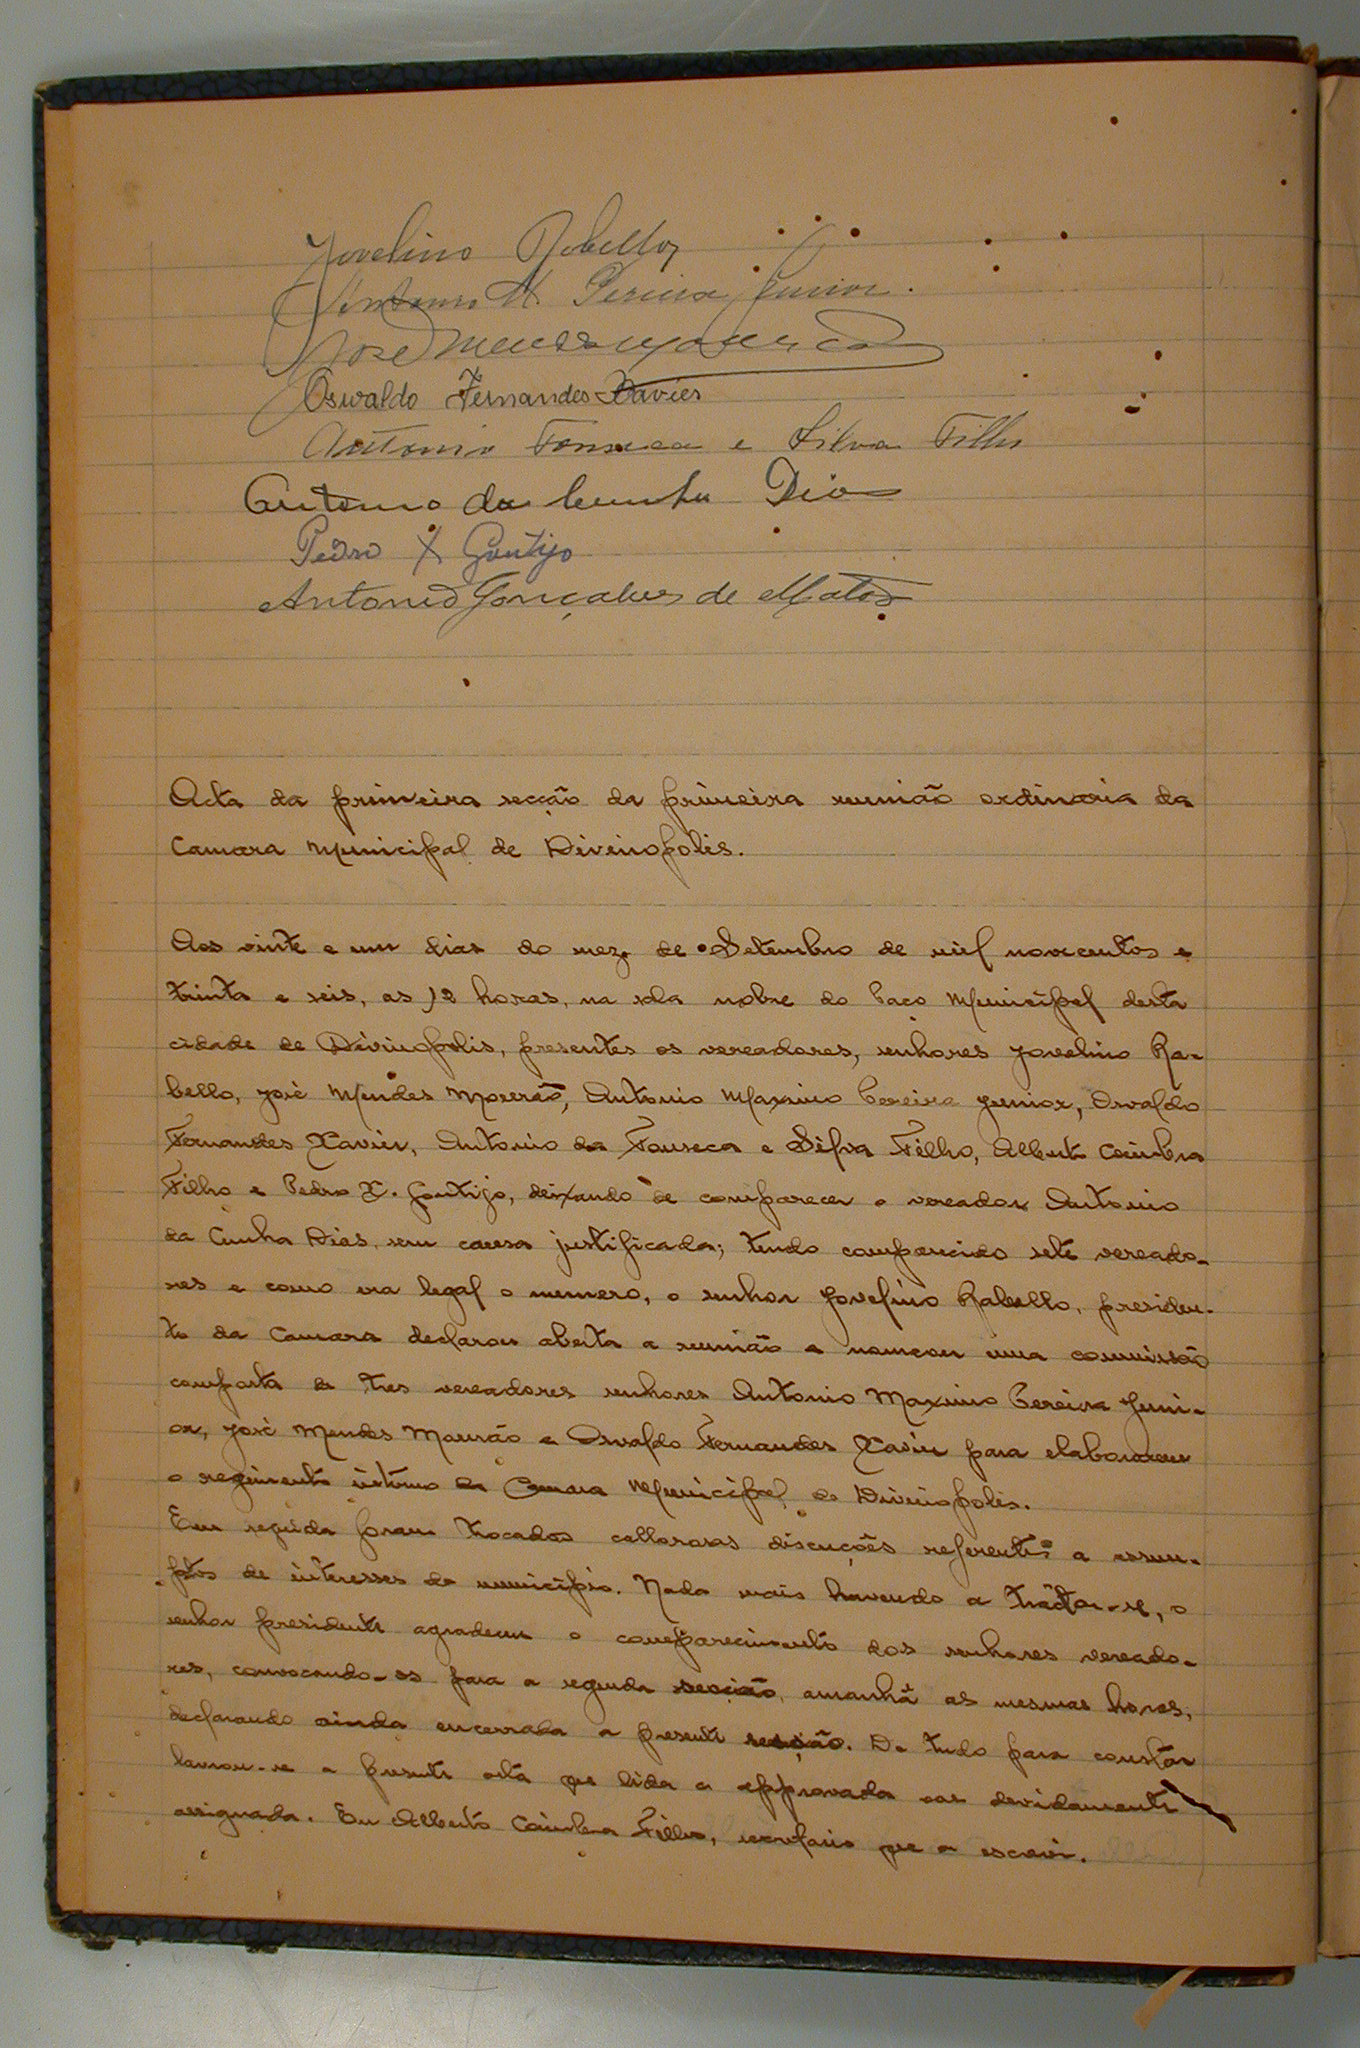 Jovelino Rabello
Antonio M. Pereira Junior.
José Mendes Mourão
Oswaldo Fernandes Xavier
Antonio Fonseca e Silva Filho
Antonio da Cunha Dias
Pedro X Gontijo
Antonio Gonçalves de Matos
Acta da primeira secção da primeira reunião ordinaria da
Camara Municipal de Divinopolis.
Aos vinte e um dias do mez de Setembro de mil novecentos e
trinta e seis, as 12 horas, na sala nobre do Paço Municipal desta
cidade de Divinopolis, presentes os vereadores, senhores Jovelino Ra-
bello, José Mendes Mourão, Antonio Maximo Pereira Junior, Osvaldo
Fernandes Xavier, Antonio da Fonseca e Silva Filho, Alberto Coimbra
Filho e Pedro X. Gontijo, deixando de comparecer o vereador Antonio
da Cunha Dias, sem causa justificada; tendo comparecido sete vereado-
res e como era legal o numero, o senhor Jovelino Rabello, presiden-
te da Camara declarou aberta a reunião e nomeou uma commissão
composta de tres vereadores senhores Antonio Maximo Pereira Juni-
or, José Mendes Mourão e Osvaldo Fernandes Xavier para elaborarem
o regimento interno da Camara Municipal de Divinopolis.
Em seguida foram trocadas callorosas discuções referentes a assum-
ptos de interesses do municipio. Nada mais havendo a tráctar-se, o
senhor presidente agradeceu o comparecimento dos senhores vereado-
res, convocando-os para a segunda secção, amanhã as mesmas horas,
declarando ainda encerrada a presente secção. De tudo para constar
lavrou-se a presente acta que lida e approvada vae devidamente
assignada. Eu Alberto Coimbra Filho, secretario que a escrevi.